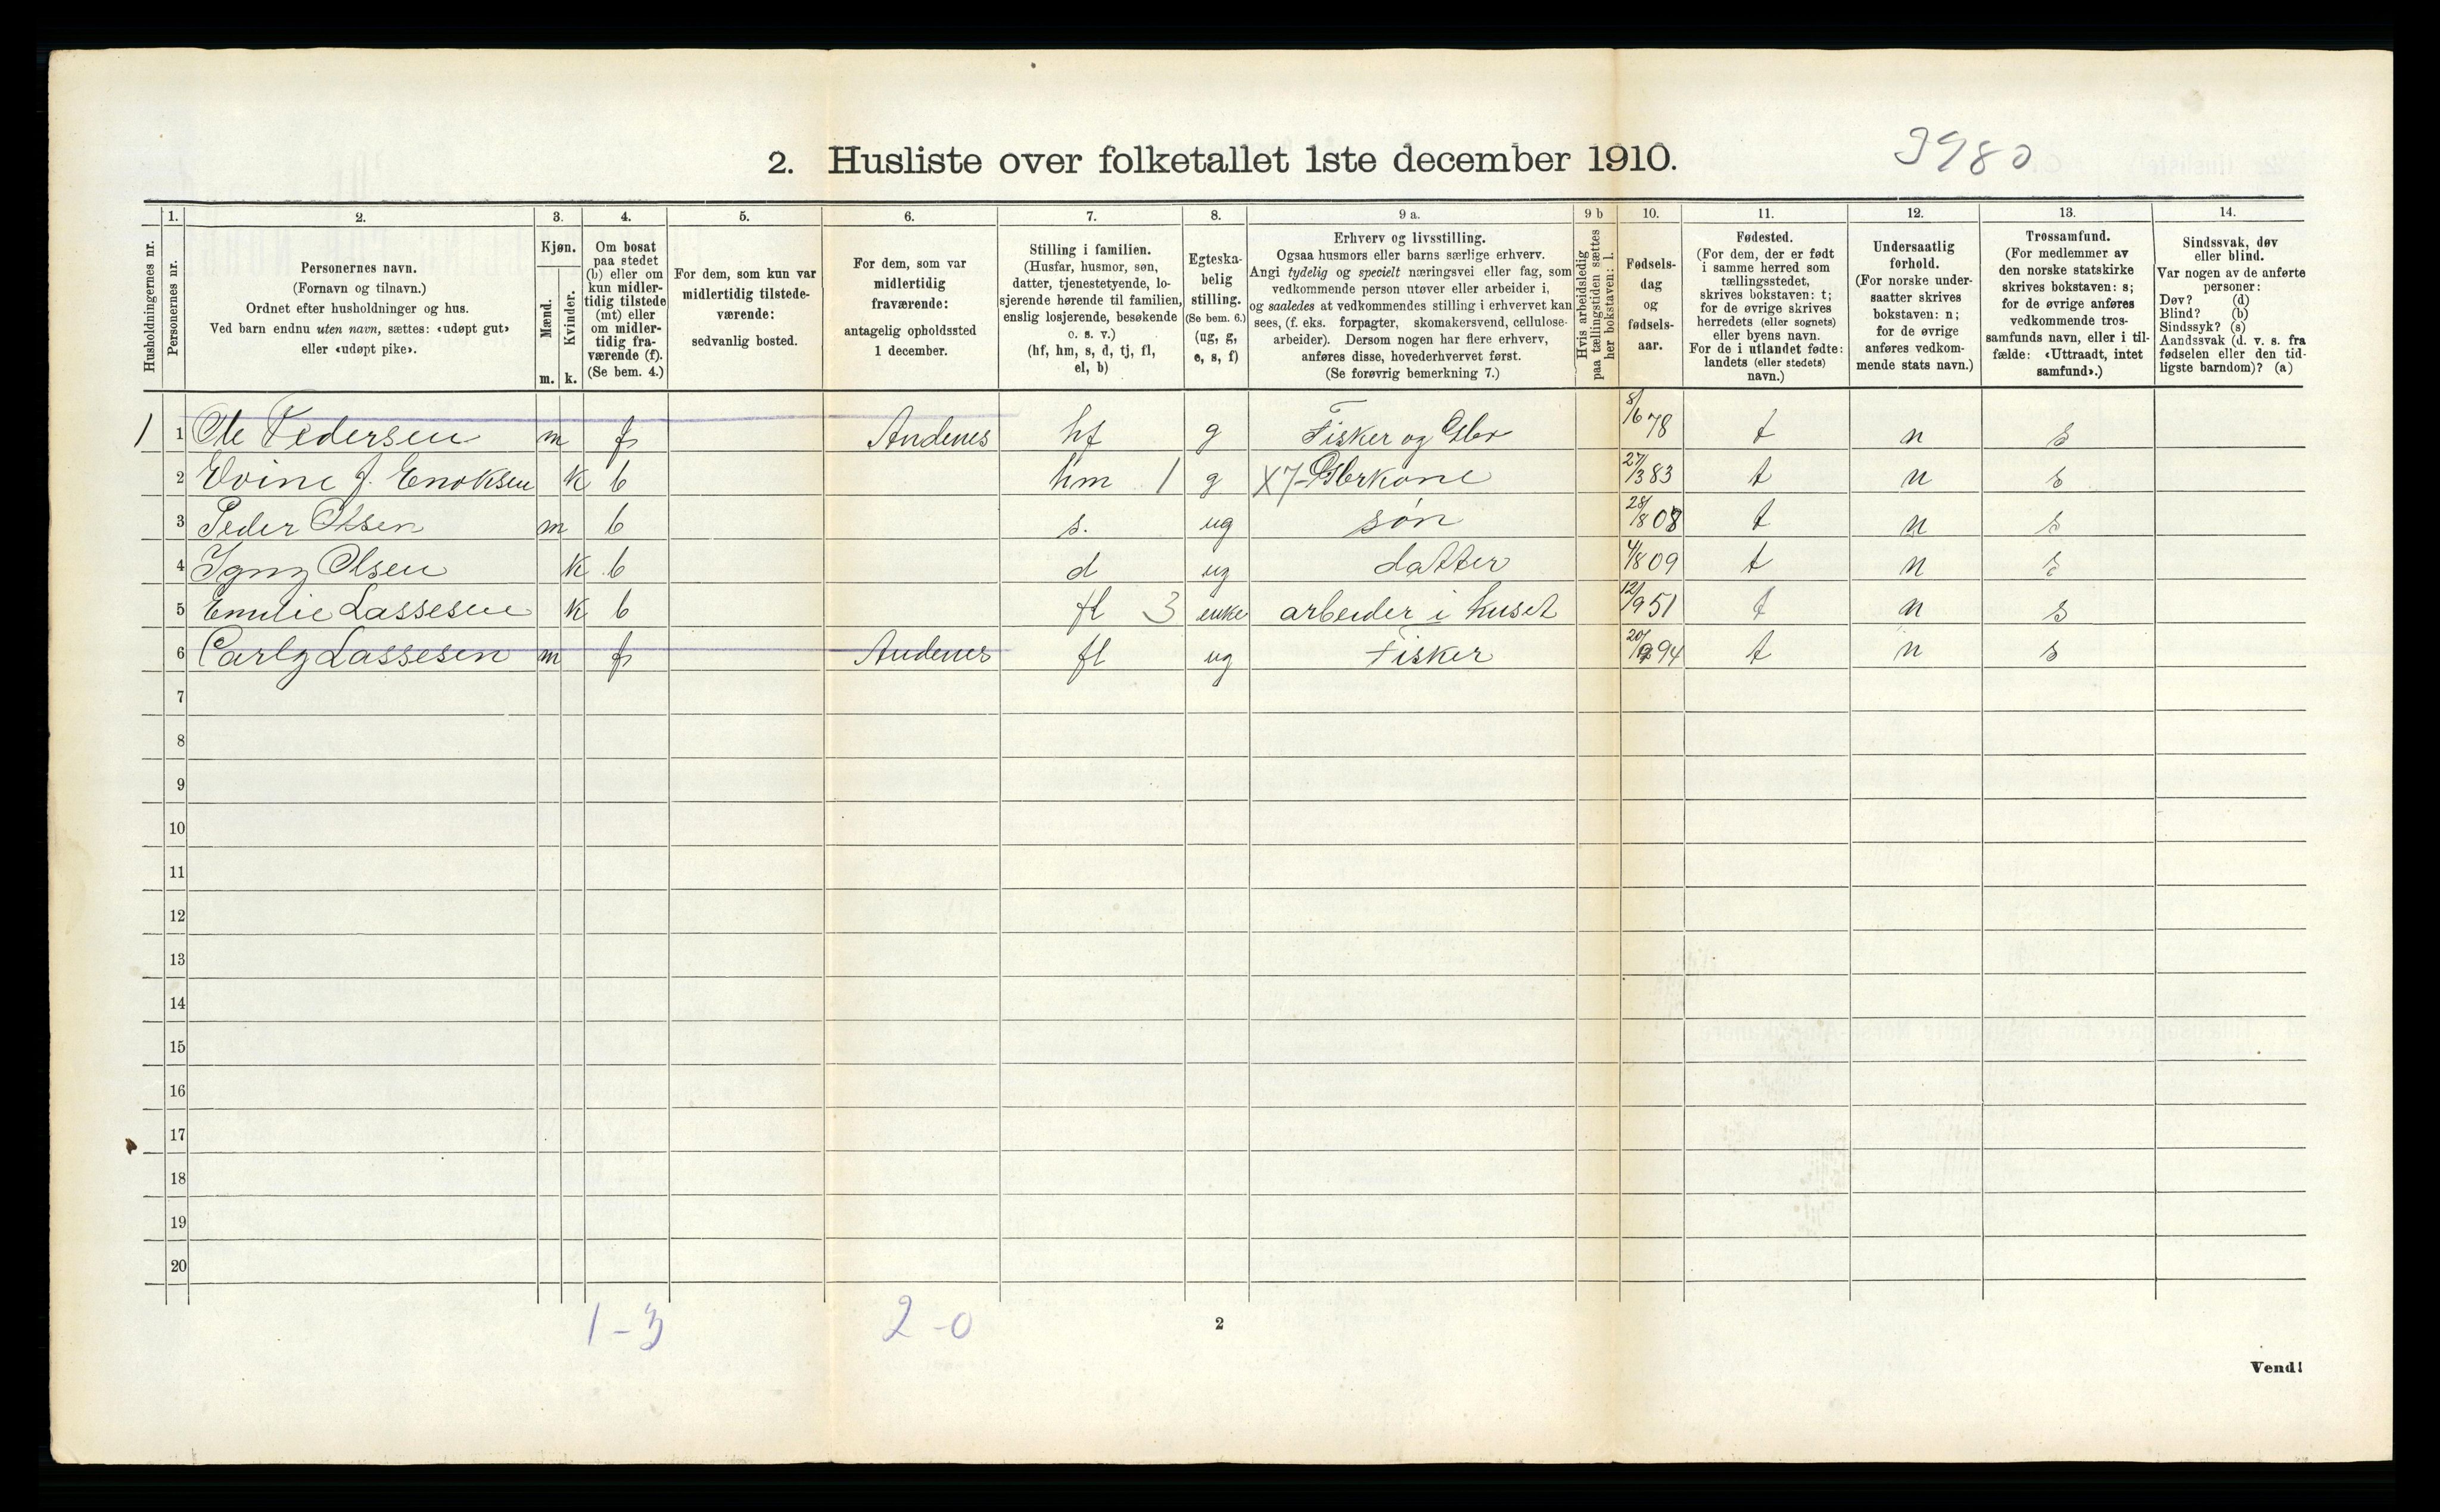 2. Husliste over folketallet 1ste december 1910.
3980
Husholdningernes nr.
1.
Personernes nr.
2.
Personernes navn.
(Fornavn og tilnavn.)
Ordnet efter husholdninger og hus.
Ved barn endnu uten navn, sættes: «udøpt gut»
eller «udøpt pike».
3.
Kjøn.
Mænd.
m.
Kvinder.
k.
4.
Om bosat
paa stedet
(b) eller om
kun midler-
tidig tilstede
(mt) eller
om midler-
tidig fra-
værende (f).
(Se bem. 4.)
5.
For dem, som kun var
midlertidig tilstede-
værende:
sedvanlig bosted.
6.
For dem, som var
midlertidig
fraværende:
antagelig opholdssted
1 december.
7.
Stilling i familien.
(Husfar, husmor, søn,
datter, tjenestetyende, lo-
sjerende hørende til familien,
enslig losjerende, besøkende
o. s. v.)
(hf, hm, s, d, tj, fl,
el, b)
8.
Egteska-
belig
stilling.
(Se bem. 6.)
(ug, g,
e, s, f)
9 a.
Erhverv og livsstilling.
Ogsaa husmors eller barns særlige erhverv.
Angi tydelig og specielt næringsvei eller fag, som
vedkommende person utøver eller arbeider i,
og saaledes at vedkommendes stilling i erhvervet kan
sees, (f. eks. forpagter, skomakersvend, cellulose-
arbeider). Dersom nogen har flere erhverv,
anføres disse, hovederhvervet først.
(Se forøvrig bemerkning 7.)
9 b
Hvis arbeidsledig
paa tællingstiden sættes
her bokstaven: l.
10.
Fødsels-
dag
og
fødsels-
aar.
11.
Fødested.
(For dem, der er født
i samme herred som
tællingsstedet,
skrives bokstaven: t;
for de øvrige skrives
herredets (eller sognets)
eller byens navn.
For de i utlandet fødte:
landets (eller stedets)
navn.)
12.
Undersaatlig
forhold.
(For norske under-
saatter skrives
bokstaven: n;
for de øvrige
anføres vedkom-
mende stats navn.)
13.
Trossamfund.
(For medlemmer av
den norske statskirke
skrives bokstaven: s;
for de øvrige anføres
vedkommende tros-
samfunds navn, eller i til-
fælde: «Uttraadt, intet
samfund».)
14.
Sindssvak, døv
eller blind.
Var nogen av de anførte
personer:
Døv? (d)
Blind? (b)
Sindssyk? (s)
Aandssvak (d. v. s. fra
fødselen eller den tid-
ligste barndom)? (a)
1 1 Ole Pedersen m f Andenes hf g Fisker og Gbr 8/6 78 t n s
2 Ovine J. Enoksen k b hm 1 g X7-Gbrkone 27/3 83 t n s
3 Peder Olsen m b s. ug søn 28/8 08 t n s
4 Olsen k b d ug datter 4/8 09 t n s
5 Emilie Lassesen k b fl 3 enke arbeider i huset 12/9 51 t n s
6 Carly Lassesen m f Andenes fl ug Fisker 94 t n s
7
8
9
10
11
12
13
14
15
16
17
18
19
20
1-3 2-0
2
Vend!